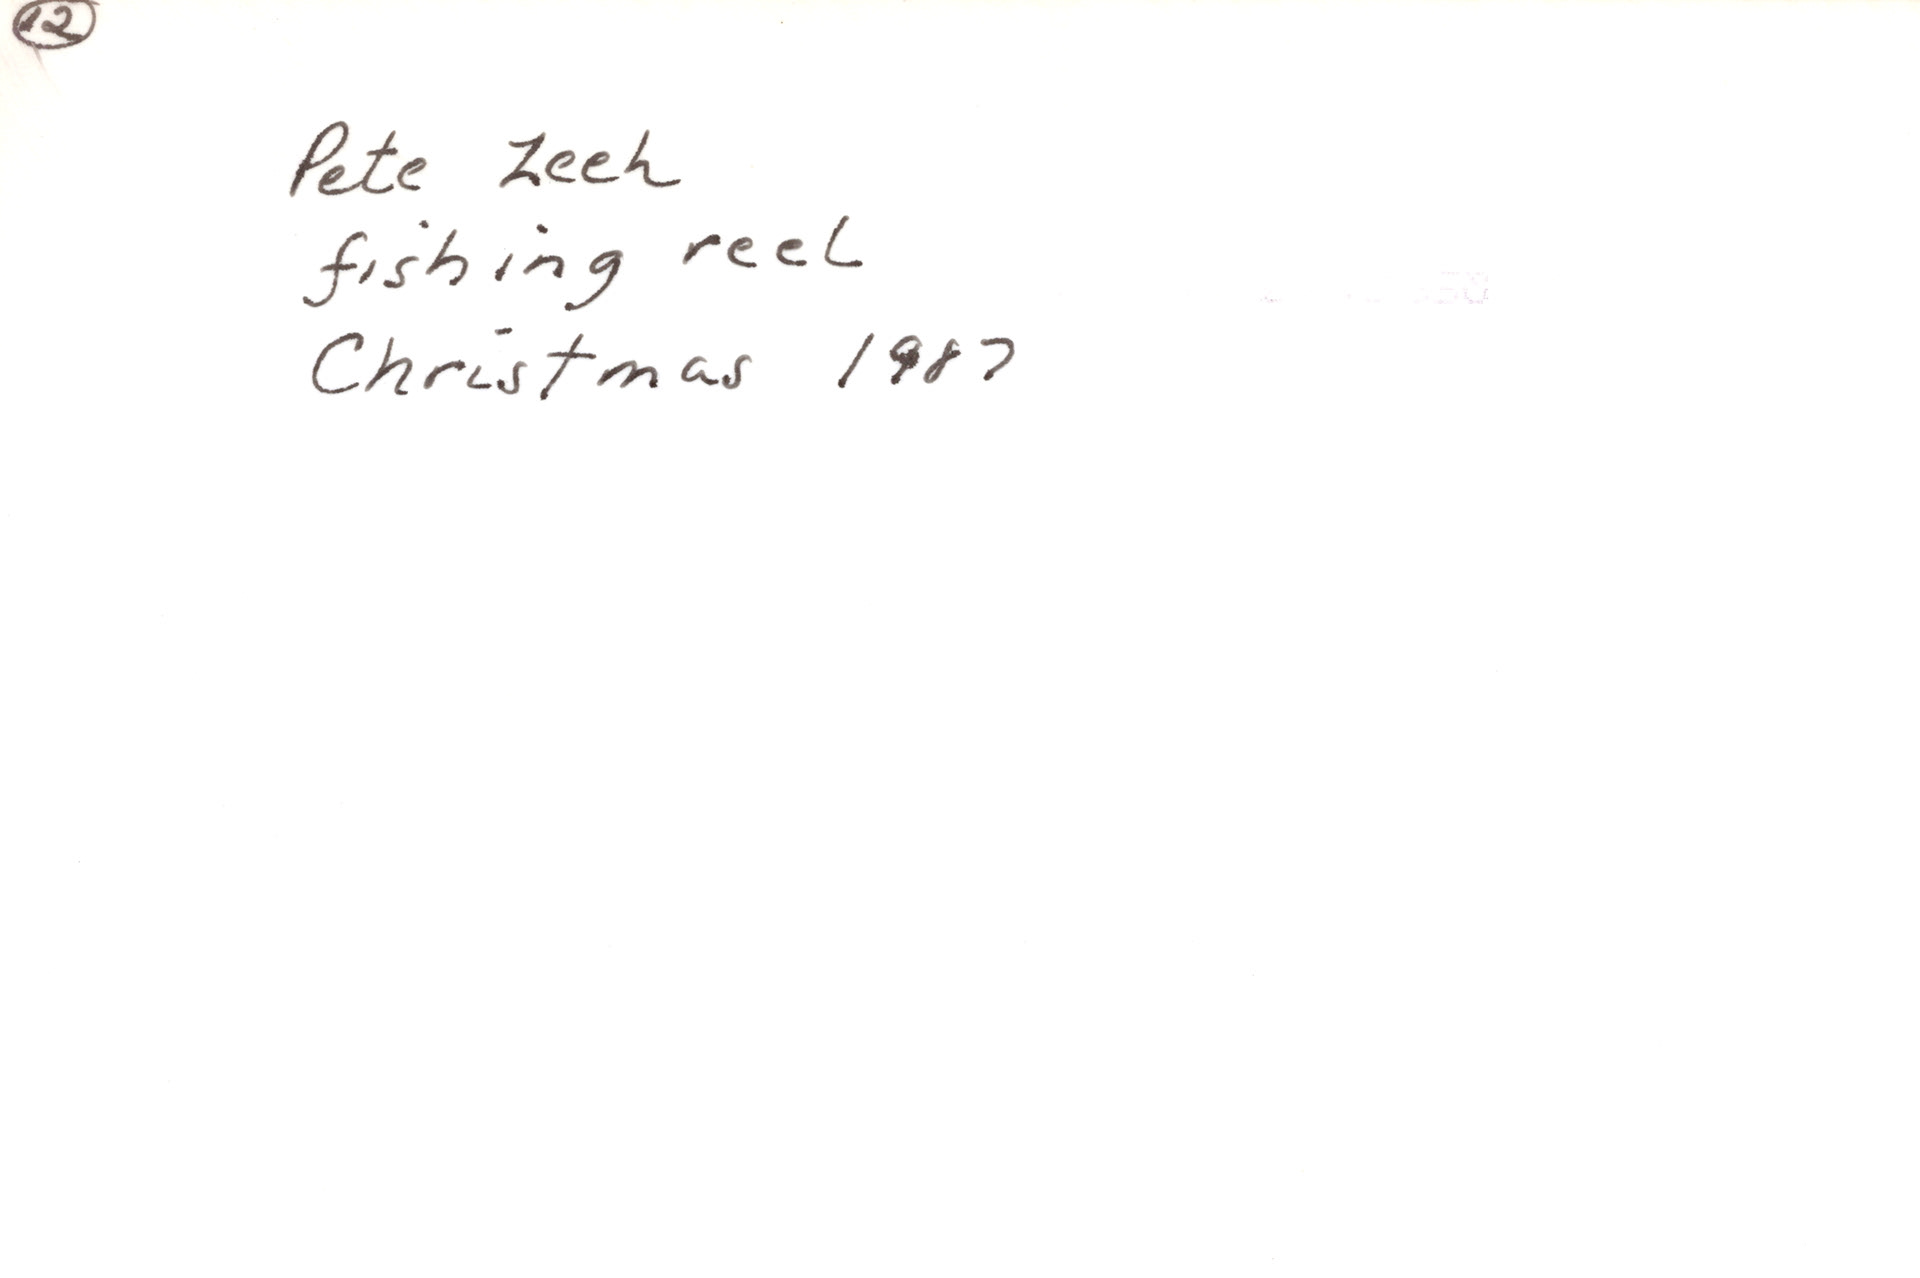 12
Pete Zeeh
fishing reel
Christmas 1987